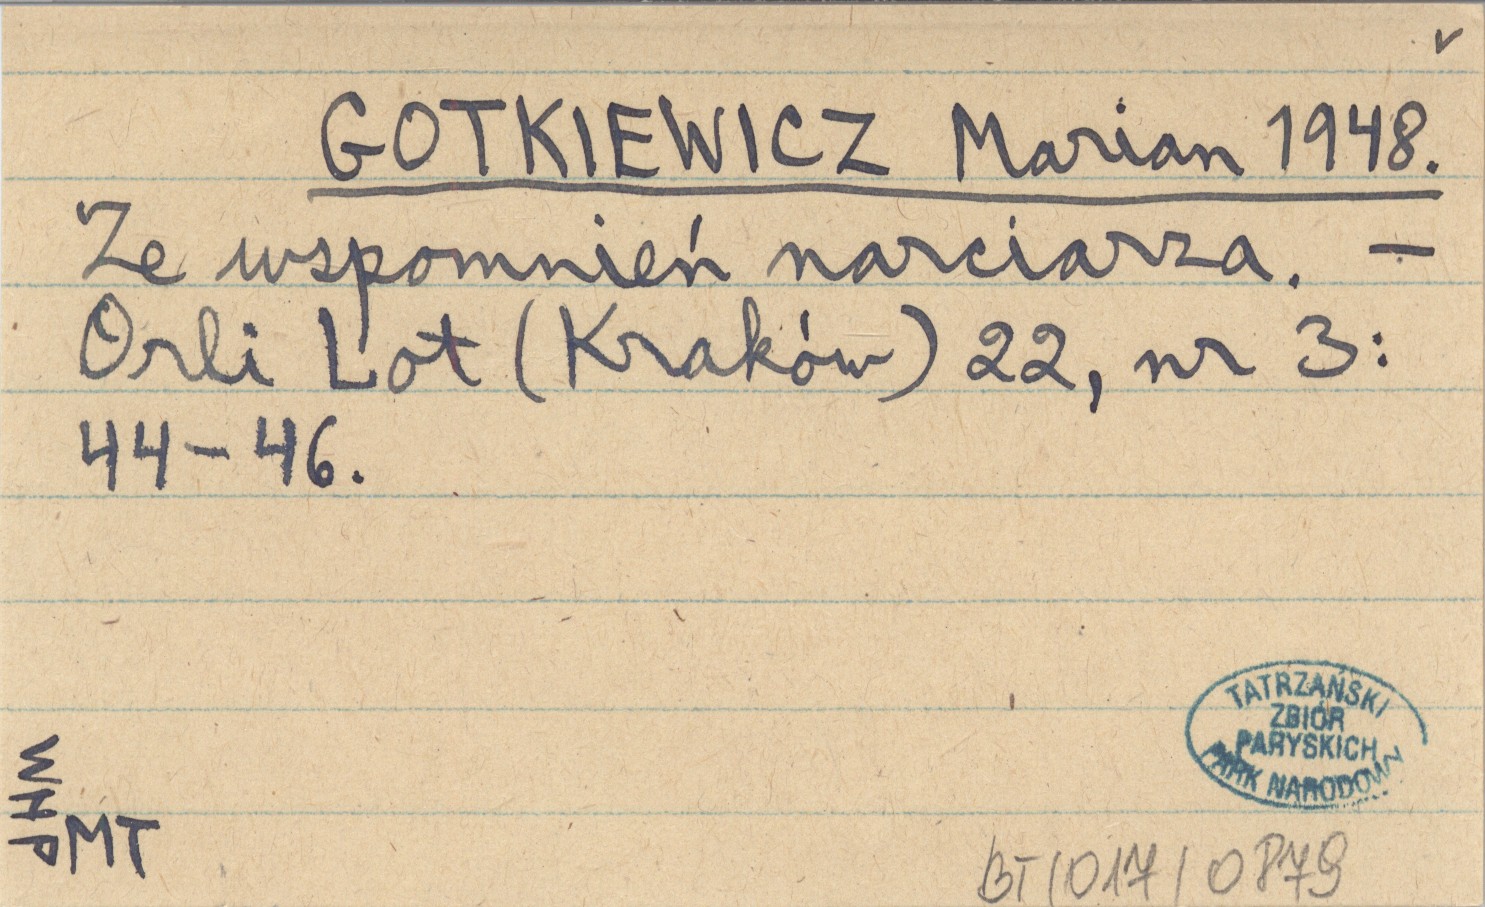 v
GOTKIEWICZ Marian 1948.
Ze wspomnień narciarza. —
Orli Lot (Kraków) 22, nr 3:
44-46.
TATRZAŃSKI
ZBIÓR
PARYSKICH
PARK NARODOWY
WHP
MT
BT/017/0879